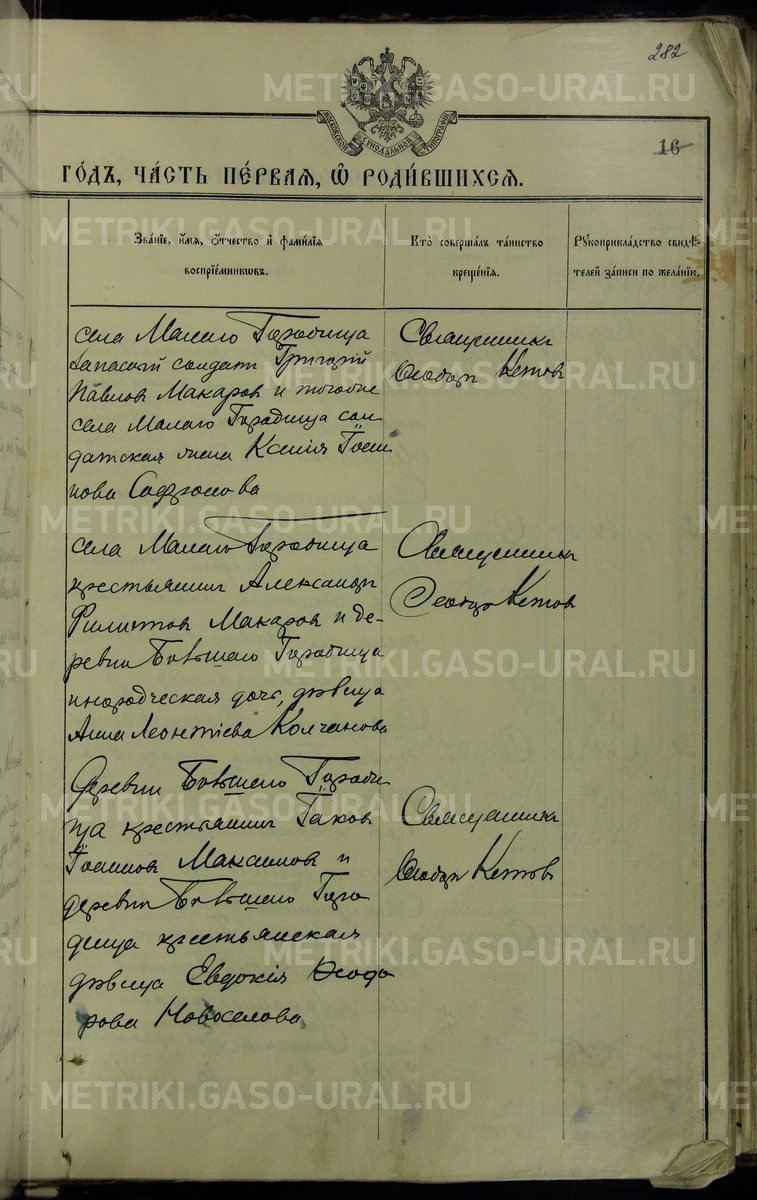 282
МОСКОВСКОЙ СѴНОДАЛЬНОЙ ТИПОГРАФІИ
16
ГО́ДЪ, ЧА́СТЬ ПЕ́РВАЯ, Ѽ РОДИ́ВШИХСЯ.
Зва́нїе, и́мя, ѻ́тчество и҆ фами́лїѧ
воспрїе́мникѡвъ.
Кто̀ соверша́лъ та́инство
креще́нїѧ.
Рꙋкоприкла́дство свидѣ́-
телей за́писи по жела́нїю.
села Малаго Городища
запасный солдатъ Григорій
Павловъ Макаровъ и тогоже
села Малаго Городища сол
датская жена Ксенія Іоан
нова Софронова
Священникъ
Ѳеодоръ Кетовъ
села Малаго Городища
крестьянинъ Александръ
Филиповъ Макаровъ и де-
ревни Большаго Городища
инородческая дочь, дѣвица
Анна Леонтіева Колчанова
Священникъ
Ѳеодоръ Кетовъ
Деревни Большаго Городи
ща крестьянинъ Іаковъ
Іоанновъ Максимовъ и
деревни Большаго Горо
дища крестьянская
дѣвица Евдокія Ѳеодо
рова Новоселова
Священникъ
Ѳеодоръ Кетовъ
METRIKI.GASO-URAL.RU